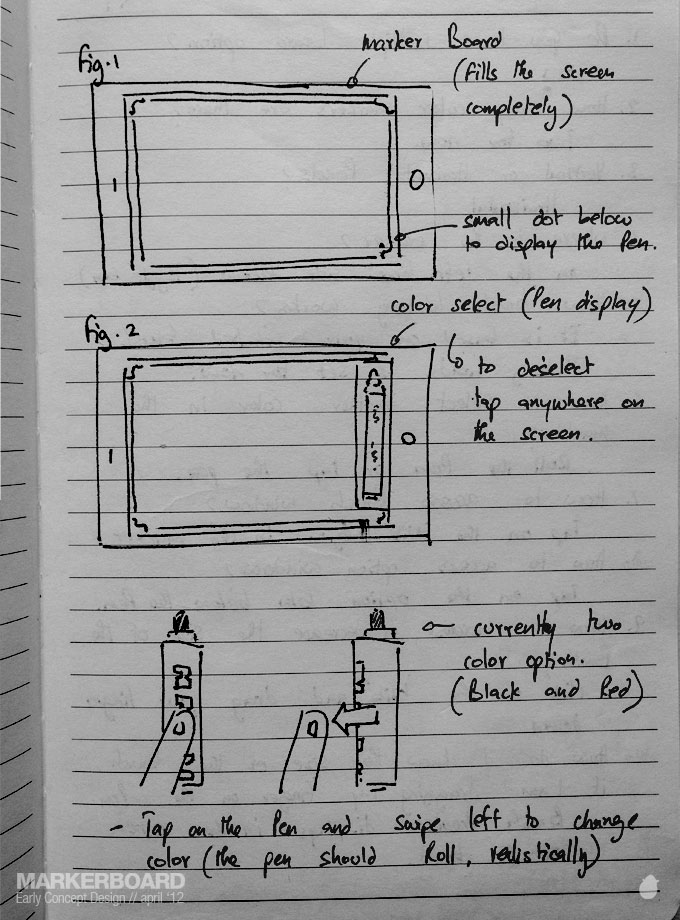 Fig. 1
marker Board
(fills the screen
completely)
small dot below
to display the Pen.
color select (Pen display)
Fig. 2
to deselect
tap anywhere on
the screen.
currently two
color option.
(Black and Red)
- Tap on the Pen and swipe left to change
color (the pen should Roll, realistically)
MARKERBOARD
Early Concept Design // april '12